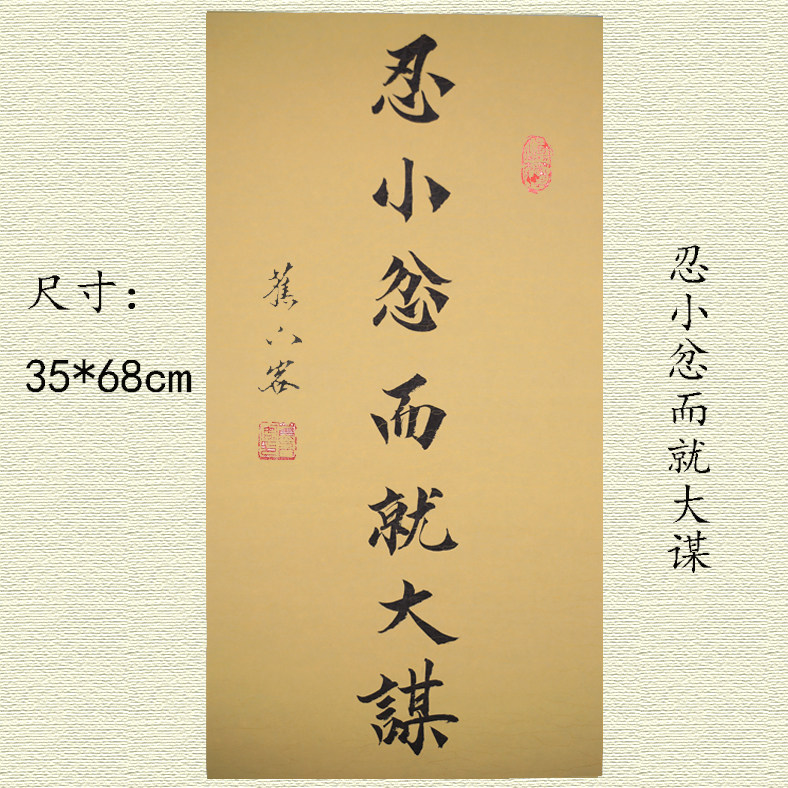 忍小忿而就大謀
蕉下客
尺寸：
35*68cm
忍小忿而就大谋